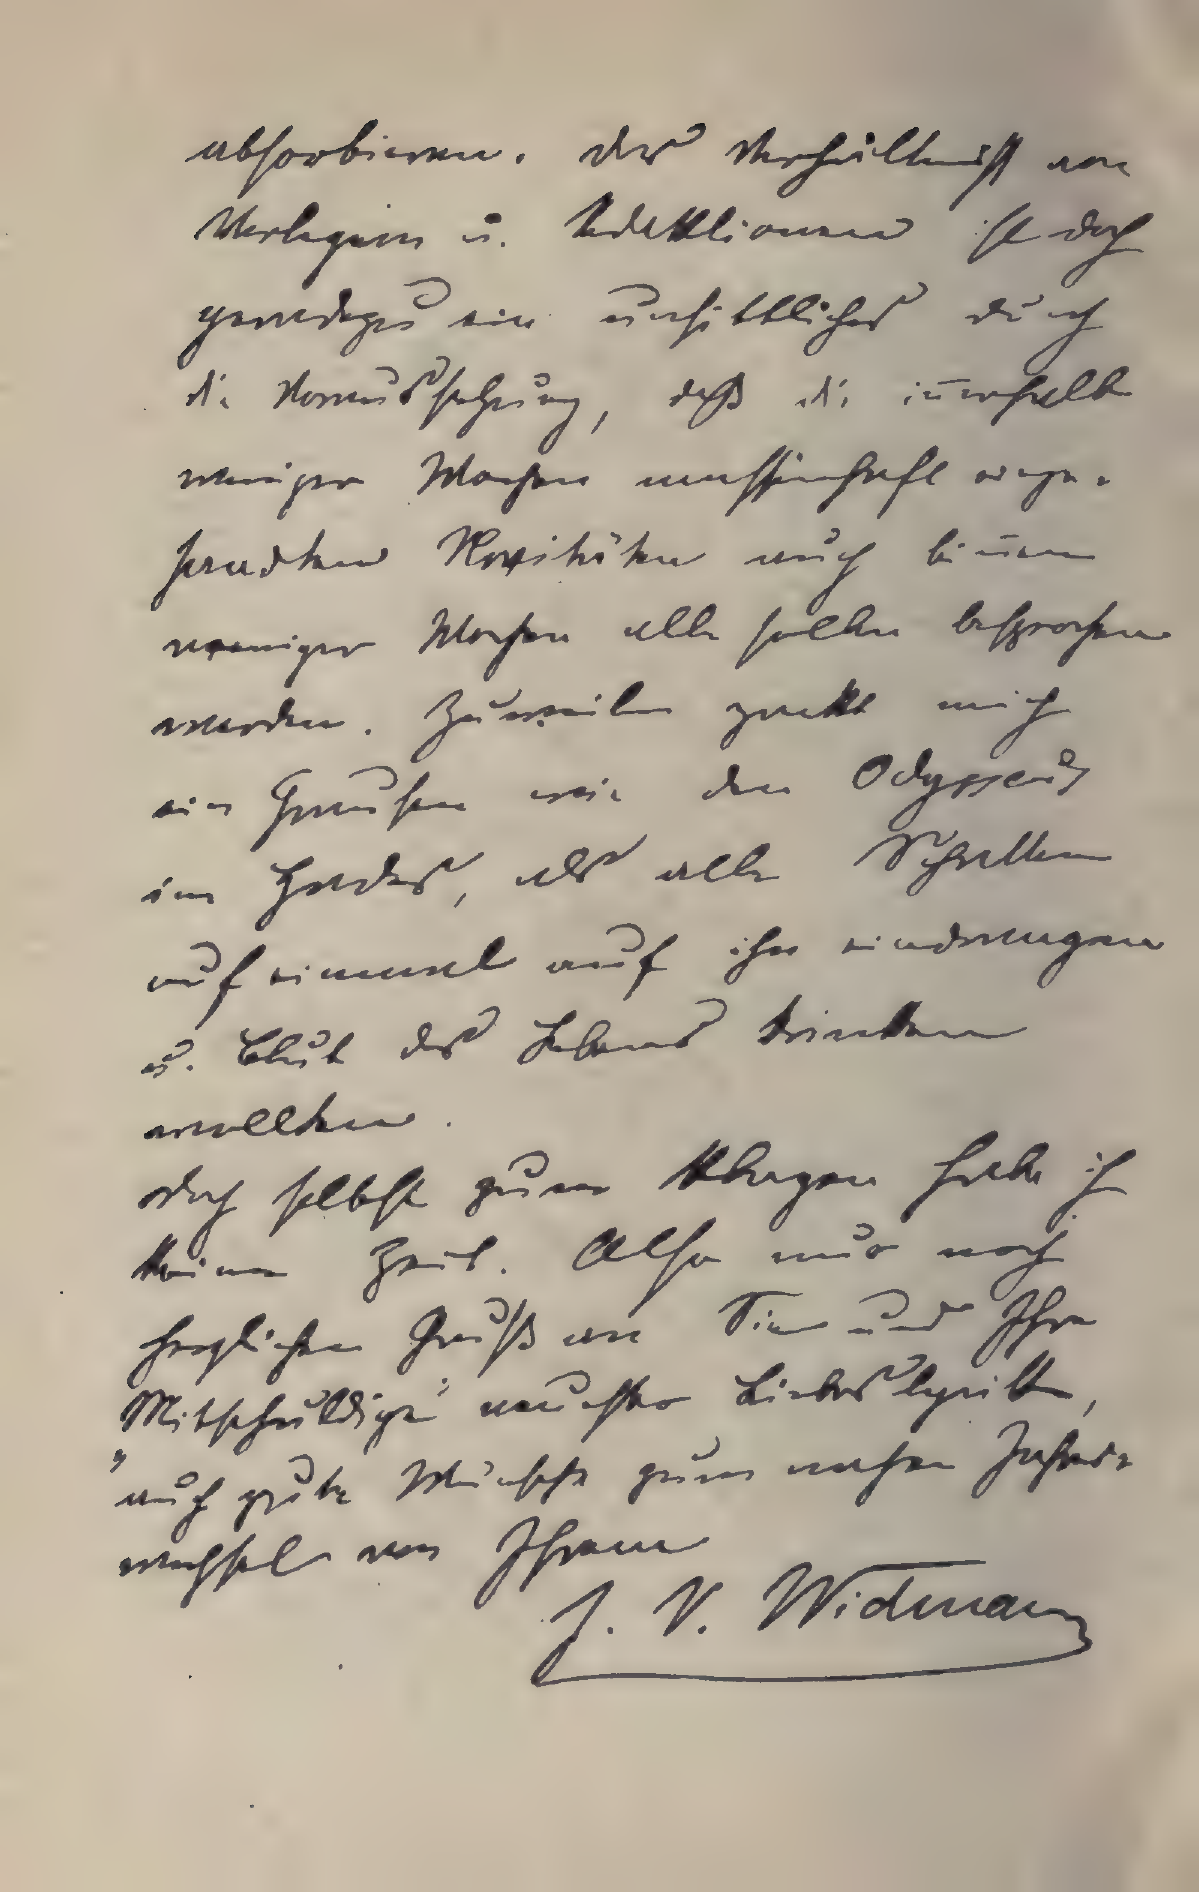 absorbieren. Das Verhältniss von
Verlegern u. Redaktionen ist doch
geradezu ein unsittliches durch
die Voraussetzung, daß die innerhalb
weniger Wochen massenhaft einge-
sandten Novitäten auch binnen
weniger Wochen alle sollen besprochen
werden. Zuweilen packt mich
ein Grausen wie den Odysseus
im Hades, als alle Schatten
auf einmal auf ihn eindrangen
u. Blut des Lebens trinken
wollten.
Doch selbst zum Klagen habe ich
keine Zeit. Also nur noch
herzlichen Gruß an Sie und Ihre
„Mitschuldige“ neuester Liebeslyrik,
auch gute Wünsche zum nahen Jahres-
wechsel von Ihrem
J. V. Widmann